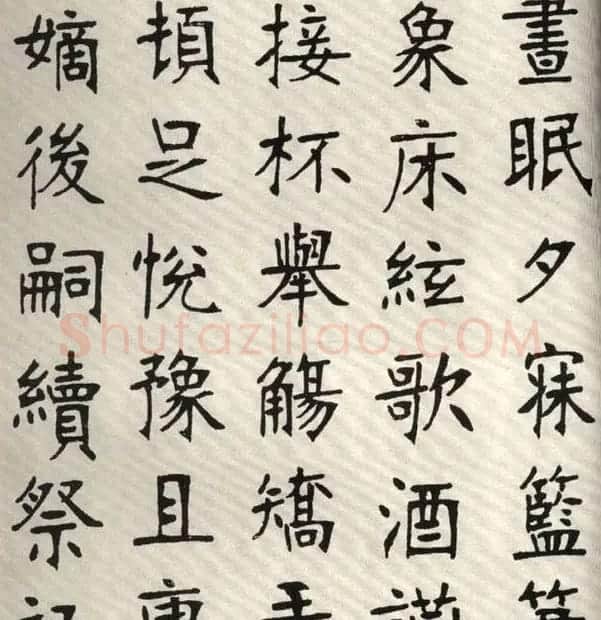 晝眠夕寐籃
象床絃歌酒
接杯舉觴矯手
頓足悅豫且康
嫡後嗣續祭
Shufaziliao.COM